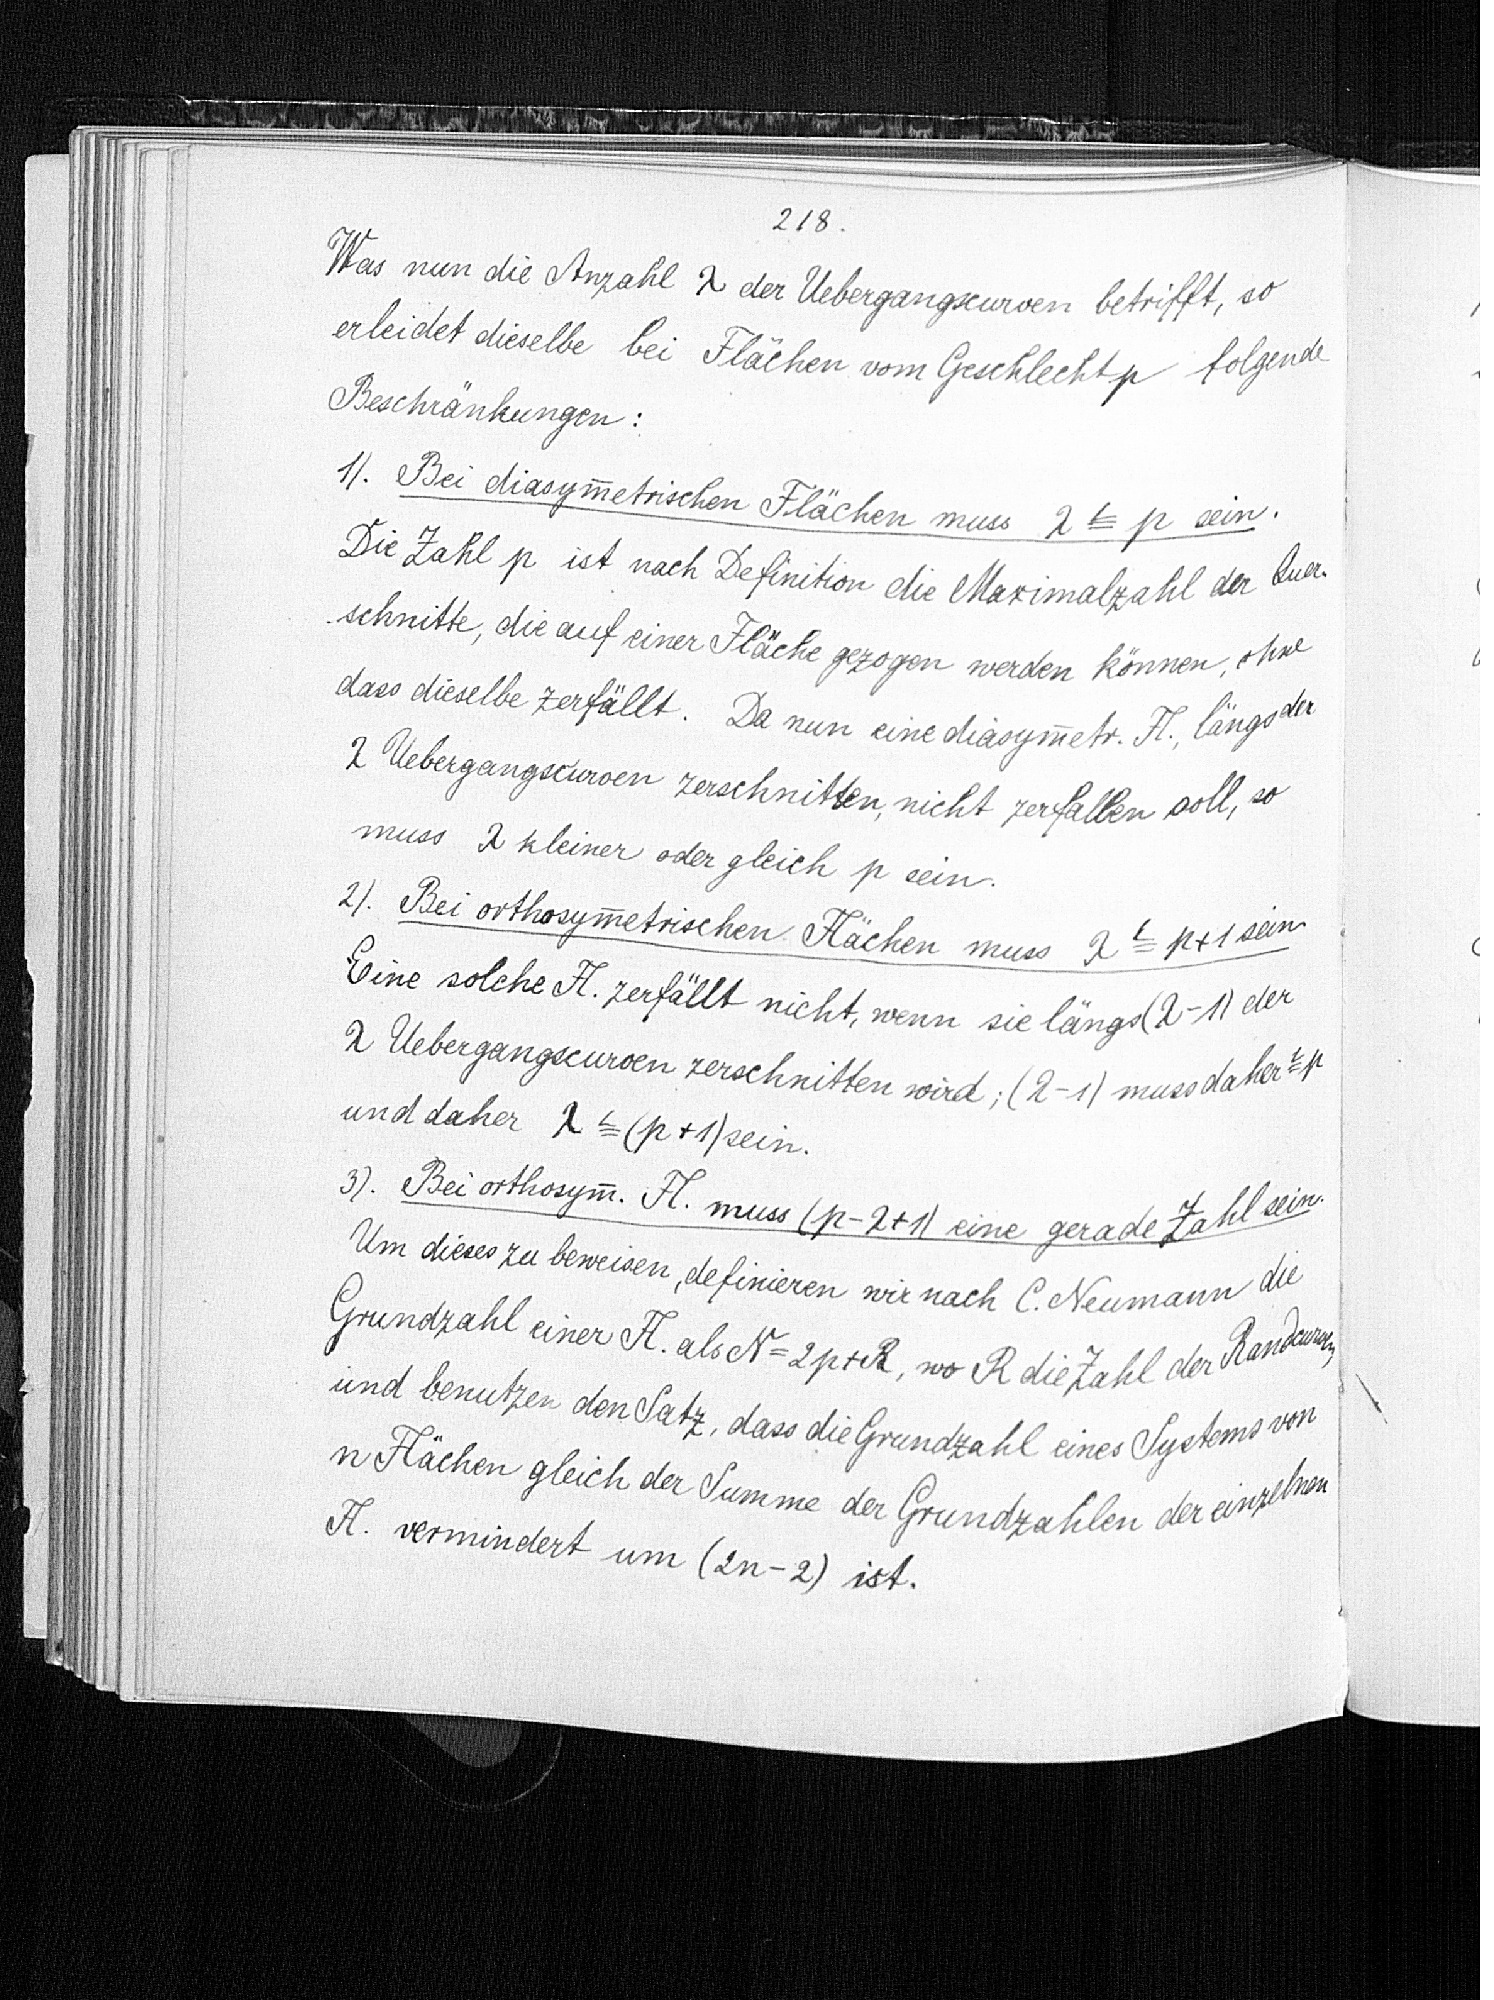 218.
Was nun die Anzahl λ der Uebergangscurven betrifft, so
erleidet dieselbe bei Flächen vom Geschlecht p folgende
Beschränkungen:
1). Bei diasym̅etrischen Flächen muss λ ≦ p sein.
Die Zahl p ist nach Definition die Maximalzahl der Quer-
schnitte, die auf einer Fläche gezogen werden können, ohne
dass dieselbe zerfällt. Da nun eine diasym̅etr. Fl., längs der
λ Uebergangscurven zerschnitten, nicht zerfallen soll, so
muss λ kleiner oder gleich p sein.
2). Bei orthosym̅etrischen Flächen muss λ ≦ p+1 sein
Eine solche Fl. zerfällt nicht, wenn sie längs (λ-1) der
λ Uebergangscurven zerschnitten wird; (λ-1) muss daher ≦ p
und daher λ ≦ (p+1) sein.
3). Bei orthosym̅. Fl. muss (p-λ+1) eine gerade Zahl sein.
Um dieses zu beweisen, definieren wir nach C. Neumann die
Grundzahl einer Fl. als N=2p+R, wo R die Zahl der Randcurven,
und benutzen den Satz, dass die Grundzahl eines Systems von
n Flächen gleich der Summe der Grundzahlen der einzelnen
Fl. vermindert um (2n-2) ist.